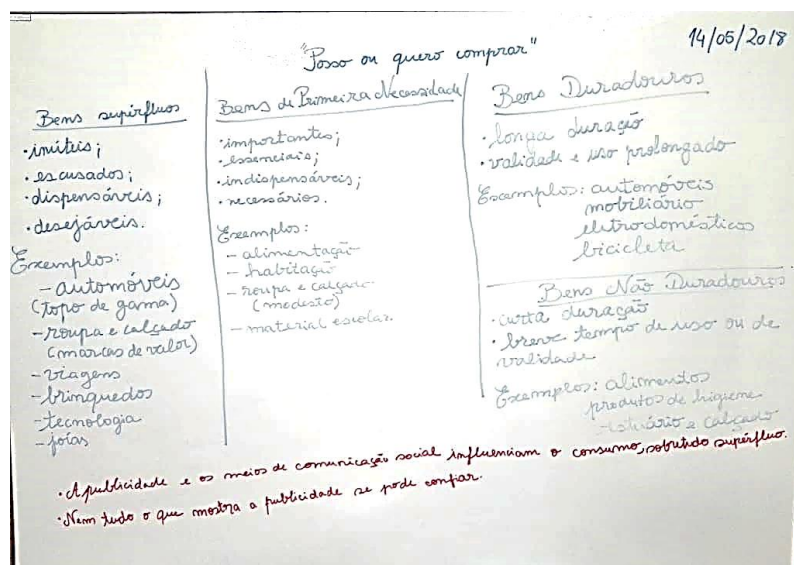 14/05/2018
"Posso ou quero comprar"
Bens supérfluos
·inúteis;
·escusados;
·dispensáveis;
·desejáveis.
Exemplos:
- automóveis
(topo de gama)
- roupa e calçado
(marcas de valor)
- viagens
- brinquedos
- tecnologia
- joías
Bens de Primeira Necessidade
·importantes;
·essenciais;
·indispensáveis;
·necessários.
Exemplos:
- alimentação
- habitação
- roupa e calçado
(modesto)
- material escolar.
Bens Duradouros
· longa duração
· validade e uso prolongado
Exemplos: automóveis
mobiliário
eletrodomésticos
bicicleta
Bens Não Duradouros
· curta duração
· breve tempo de uso ou de
validade
Exemplos: alimentos
produtos de higiene
vestuário e calçado
· A publicidade e os meios de comunicação social influenciam o consumo, sobretudo supérfluo.
· Nem tudo o que mostra a publicidade se pode confiar.